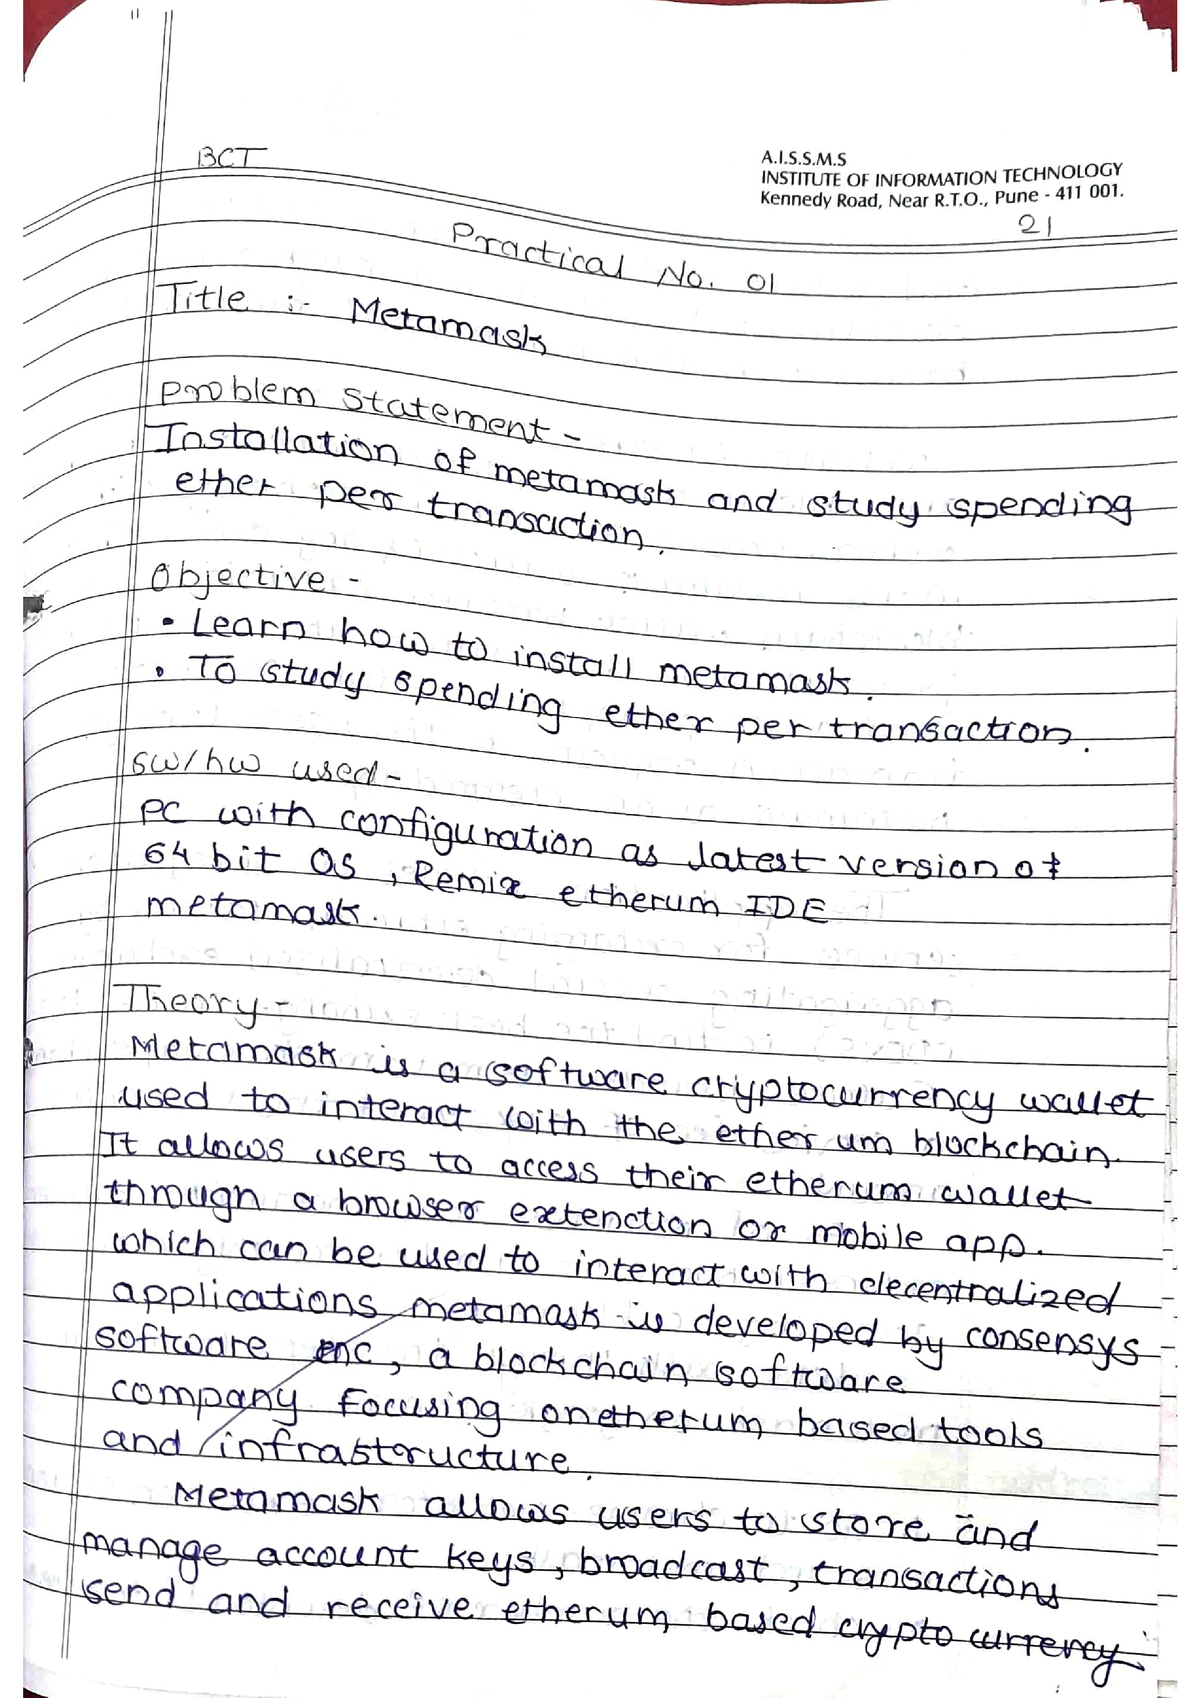 BCT
A.I.S.S.M.S
INSTITUTE OF INFORMATION TECHNOLOGY
Kennedy Road, Near R.T.O., Pune - 411 001.
21
Practical No. 01
Title :- Metamask
Problem Statement -
Installation of metamask and study spending
ether per transaction.
Objective -
• Learn how to install metamask.
• To study spending ether per transaction.
SW/hw used -
PC with configuration as latest version of
64 bit OS, Remix etherum IDE
metamask.
Theory -
Metamask is a software cryptocurrency wallet
used to interact with the ether um blockchain.
It allows users to access their etherum wallet
through a browser extenction or mobile app.
which can be used to interact with decentralized
applications metamask is developed by consensys
software enc, a blockchain software
company Focusing on etherum based tools
and infrastoructure.
Metamask allows users to store and
manage account keys, broadcast, transactions
send and receive etherum based crypto currency.